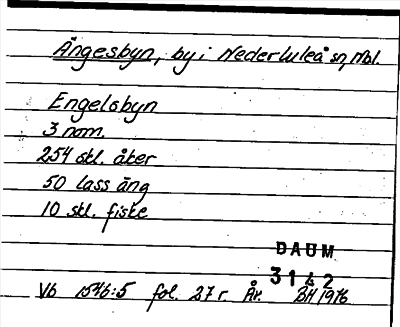 Ängesbyn, by i Nederluleå sn, Nbl.
Engelsbyn
3 nom.
254 skl. åker
50 lass äng
10 skl. fiske
DAUM
3142
Vb 1546:5 fol. 27 r. År. BH 1976